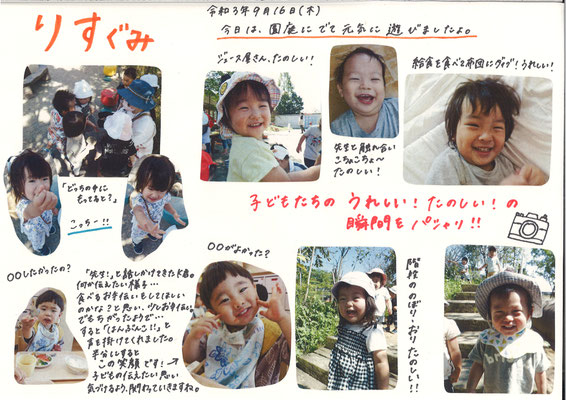 りすぐみ
令和3年9月16日(木)
今日は、園庭にでて元気に遊びましたよ。
ジュース屋さん、たのしい!
給食を食べて布団にダイブ!うれしい!
先生と触れ合い
こちょこちょ〜
たのしい!
「どっちの手に
もってると?」
こっちー!!
子どもたちの うれしい!たのしい!の
瞬間を パシャリ!!
〇〇したかったの?
「先生!」と話しかけてきたKくん。
何か伝えたい様子…
食べるお手伝いもしてほしい
のかな?と思い、少しお手伝い。
でもちがったようで…
すると「はんぶんこ!!」と
声を掛けてくれました。
半分にすると
この笑顔です!
子どもの伝えたい思い
気づけるよう、関わっていきますね。
〇〇がよかった?
階段の のぼり・おり たのしい!!